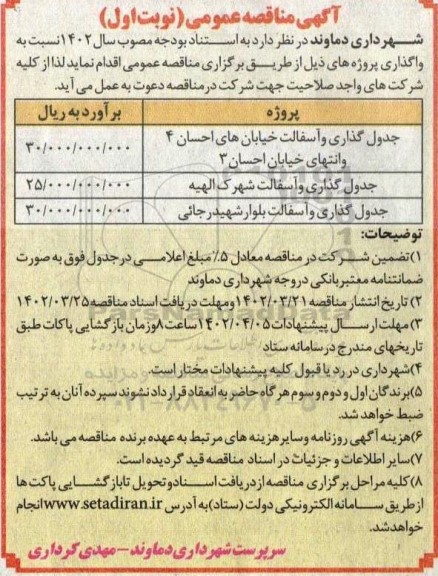 آگهی مناقصه عمومی (نوبت اول)
شهرداری دماوند در نظر دارد به استناد بودجه مصوب سال ۱۴۰۲ نسبت به
واگذاری پروژه های ذیل از طریق برگزاری مناقصه عمومی اقدام نماید لذا از کلیه
شرکت های واجد صلاحیت جهت شرکت در مناقصه دعوت به عمل می آید.
پروژه برآورد به ریال
جدول گذاری و آسفالت خیابان های احسان ۴
وانتهای خیابان احسان ۳ ۳۰/۰۰۰/۰۰۰/۰۰۰
جدول گذاری و آسفالت شهرک الهیه ۲۵/۰۰۰/۰۰۰/۰۰۰
جدول گذاری و آسفالت بلوار شهید رجائی ۳۰/۰۰۰/۰۰۰/۰۰۰
توضیحات:
۱) تضمین شرکت در مناقصه معادل ۵٪ مبلغ اعلامی در جدول فوق به صورت
ضمانتنامه معتبر بانکی در وجه شهرداری دماوند
۲) تاریخ انتشار مناقصه ۱۴۰۲/۰۳/۲۱ ومهلت دریافت اسناد مناقصه ۱۴۰۲/۰۳/۲۵
۳) مهلت ارسال پیشنهادات ۱۴۰۲/۰۴/۰۵ ساعت ۸ وزمان بازگشایی پاکات طبق
تاریخهای مندرج در سامانه ستاد
۴) شهرداری در رد یا قبول کلیه پیشنهادات مختار است.
۵) برندگان اول و دوم و سوم هر گاه حاضر به انعقاد قرارداد نشوند سپرده آنان به ترتیب
ضبط خواهد شد.
۶) هزینه آگهی روزنامه وسایر هزینه های مرتبط به عهده برنده مناقصه می باشد.
۷) سایر اطلاعات و جزئیات در اسناد مناقصه قید گردیده است.
۸) کلیه مراحل برگزاری مناقصه از دریافت اسناد وتحویل تا بازگشایی پاکت ها
از طریق سامانه الکترونیکی دولت (ستاد) به آدرس www.setadiran.ir انجام
خواهد شد.
سرپرست شهرداری دماوند - مهدی کرداری